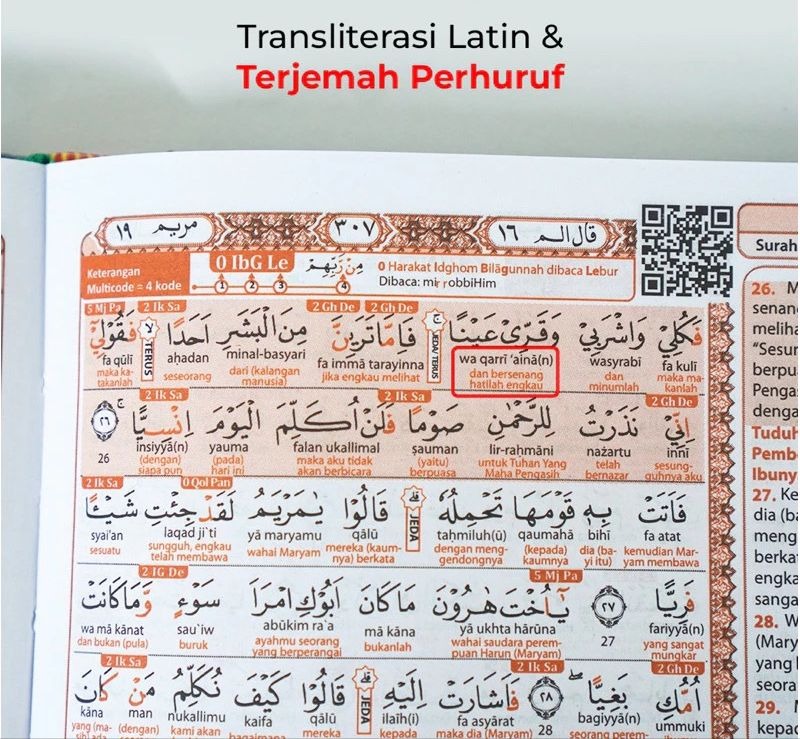 Transliterasi Latin &
Terjemah Perhuruf
مريم ١٩
٣٠٧
قال الم ١٦
Keterangan
Multicode = 4 kode
0 IbG Le
مِنْ رَّبِّهِمْ
1 2 3 4
0 Harakat Idghom Bilāgunnah dibaca Lebur
Dibaca: mir robbiHim
5 Mj Pa 2 Ik Sa 2 Gh De 2 Gh De
فَكُلِيْ وَاشْرَبِيْ وَقَرِّيْ عَيْنًاۚ فَاِمَّا تَرَيِنَّ مِنَ الْبَشَرِ اَحَدًاۙ فَقُوْلِيْٓ
JEDA/ TERUS
TERUS
fa kulī wasyrabī wa qarrī ‘ainā(n) fa immā tarayinna minal-basyari aḥadan fa qūlī
maka ma- dan dan bersenang jika engkau melihat dari (kalangan seseorang maka ka-
kanlah minumlah hatilah engkau manusia) takanlah
2 Ik Sa 2 Ik Sa 2 Gh De
اِنِّيْ نَذَرْتُ لِلرَّحْمٰنِ صَوْمًا فَلَنْ اُكَلِّمَ الْيَوْمَ اِنْسِيًّاۚ ٢٦
innī nażartu lir-raḥmāni ṣauman falan ukallimal yauma insiyyā(n) 26
sesung- telah untuk Tuhan Yang (yaitu) maka aku tidak (pada) (dengan)
guhnya aku bernazar Maha Pengasih berpuasa akan berbicara hari ini siapa pun
2 Ik Sa 0 Qol Pan
فَاَتَتْ بِهٖ قَوْمَهَا تَحْمِلُهٗۗ قَالُوْا يٰمَرْيَمُ لَقَدْ جِئْتِ شَيْـًٔا
JEDA
fa atat bihī qaumahā taḥmiluh(ū) qālū yā maryamu laqad ji`ti syai’an
kemudian Mar- dia (ba- (kepada) dengan meng- mereka (kaum- wahai Maryam sungguh, engkau sesuatu
yam membawa yi itu) kaumnya gendongnya nya) berkata telah membawa
2 IG De 5 Mj Pa
فَرِيًّا ٢٧ يٰٓاُخْتَ هٰرُوْنَ مَا كَانَ اَبُوْكِ امْرَاَ سَوْءٍ وَّمَا كَانَتْ
fariyyā(n) 27 yā ukhta hārūna mā kāna abūkim ra`a sau`iw wa mā kānat
yang sangat wahai saudara perem- bukanlah ayahmu seorang buruk dan bukan (pula)
mungkar puan Harun (Maryam) yang berperangai
2 Ik Sa 2 Ik Sa 2 Gh De
اُمُّكِ بَغِيًّاۖ ٢٨ فَاَشَارَتْ اِلَيْهِۗ قَالُوْا كَيْفَ نُكَلِّمُ مَنْ كَانَ
JEDA
ummuki bagiyyā(n) 28 fa asyārat ilaih(i) qālū kaifa nukallimu man kāna
ibumu seorang perem- maka dia (Maryam) kepada mereka bagaimana kami akan (dengan) yang (ma-
Surah
26.
senang
"Sesun
denga
Tuduh
Pemb
Ibuny
27. Ke
dia (ba
meng
berkat
engka
sanga
28. W
(Mary
yang
seora
29.